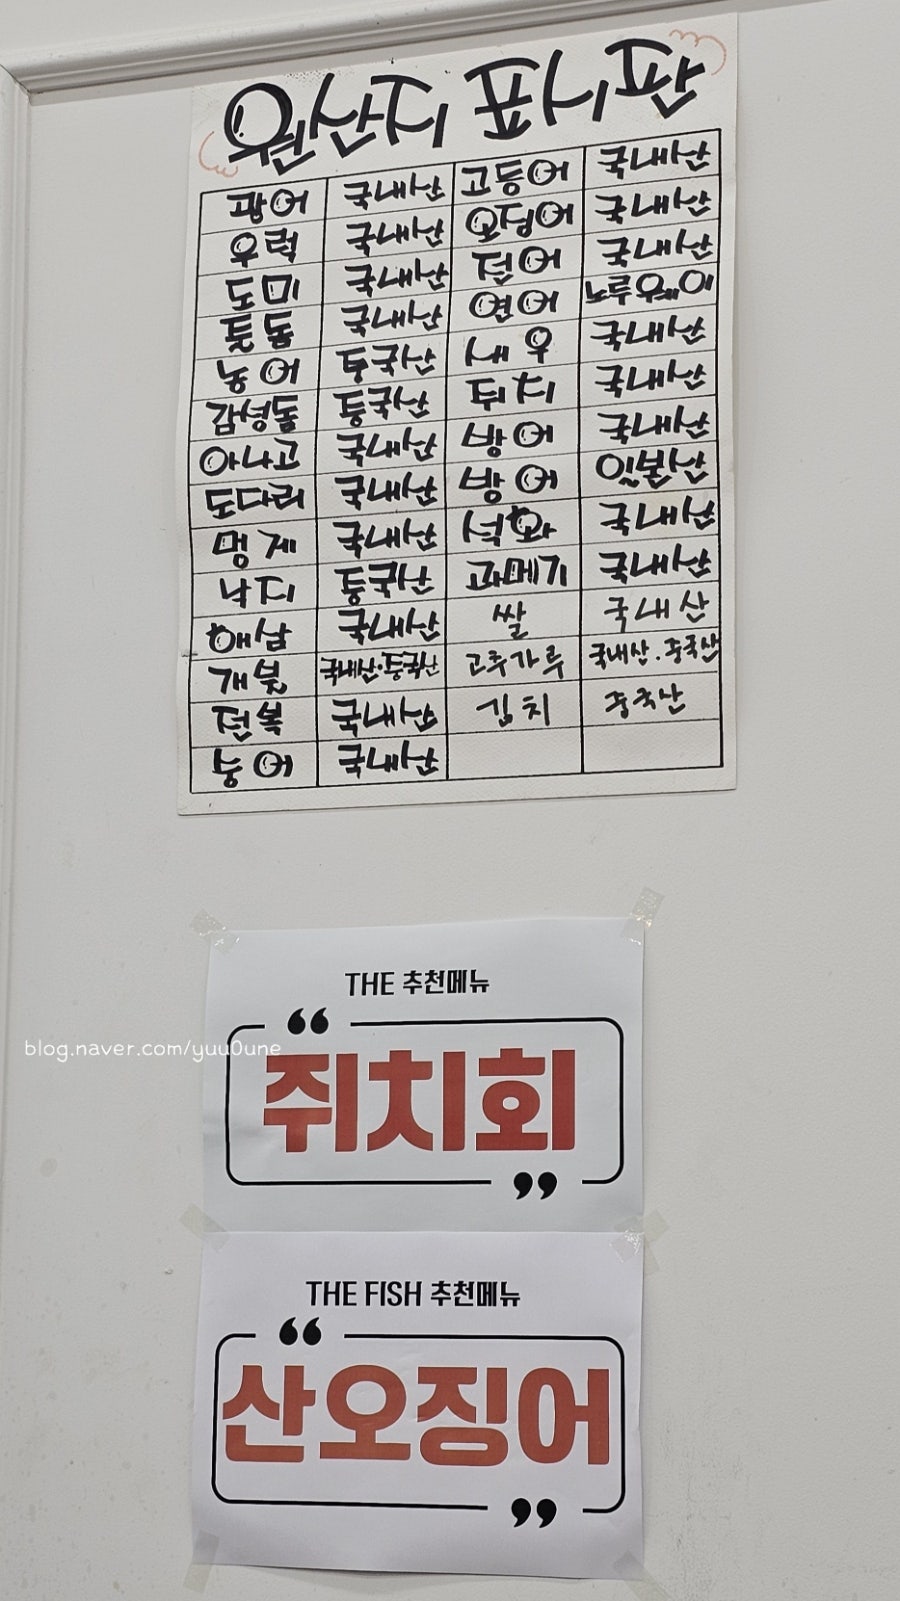 원산지 표시판
광어 국내산 고등어 국내산
우럭 국내산 오징어 국내산
도미 국내산 전어 국내산
돌돔 국내산 연어 노루웨이
농어 중국산 새우 국내산
감성돔 중국산 쥐치 국내산
아나고 국내산 방어 국내산
도다리 국내산 방어 일본산
멍게 국내산 석화 국내산
낙지 중국산 과메기 국내산
해삼 국내산 쌀 국내산
개불 국내산.중국산 고추가루 국내산.중국산
전복 국내산 김치 중국산
숭어 국내산
THE 추천메뉴
“
blog.naver.com/yuu0une
쥐치회
”
THE FISH 추천메뉴
“
산오징어
”